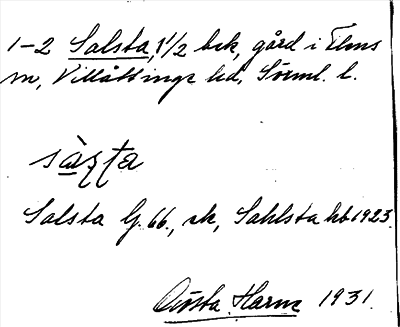 1-2 Salsta, 1 1/2 bek, gård i Flens
sn, Villåttinge hd, Sörml. l.
Salsta Gg. 66., rk, Sahlsta hb 1923.
Gösta Harns 1931.